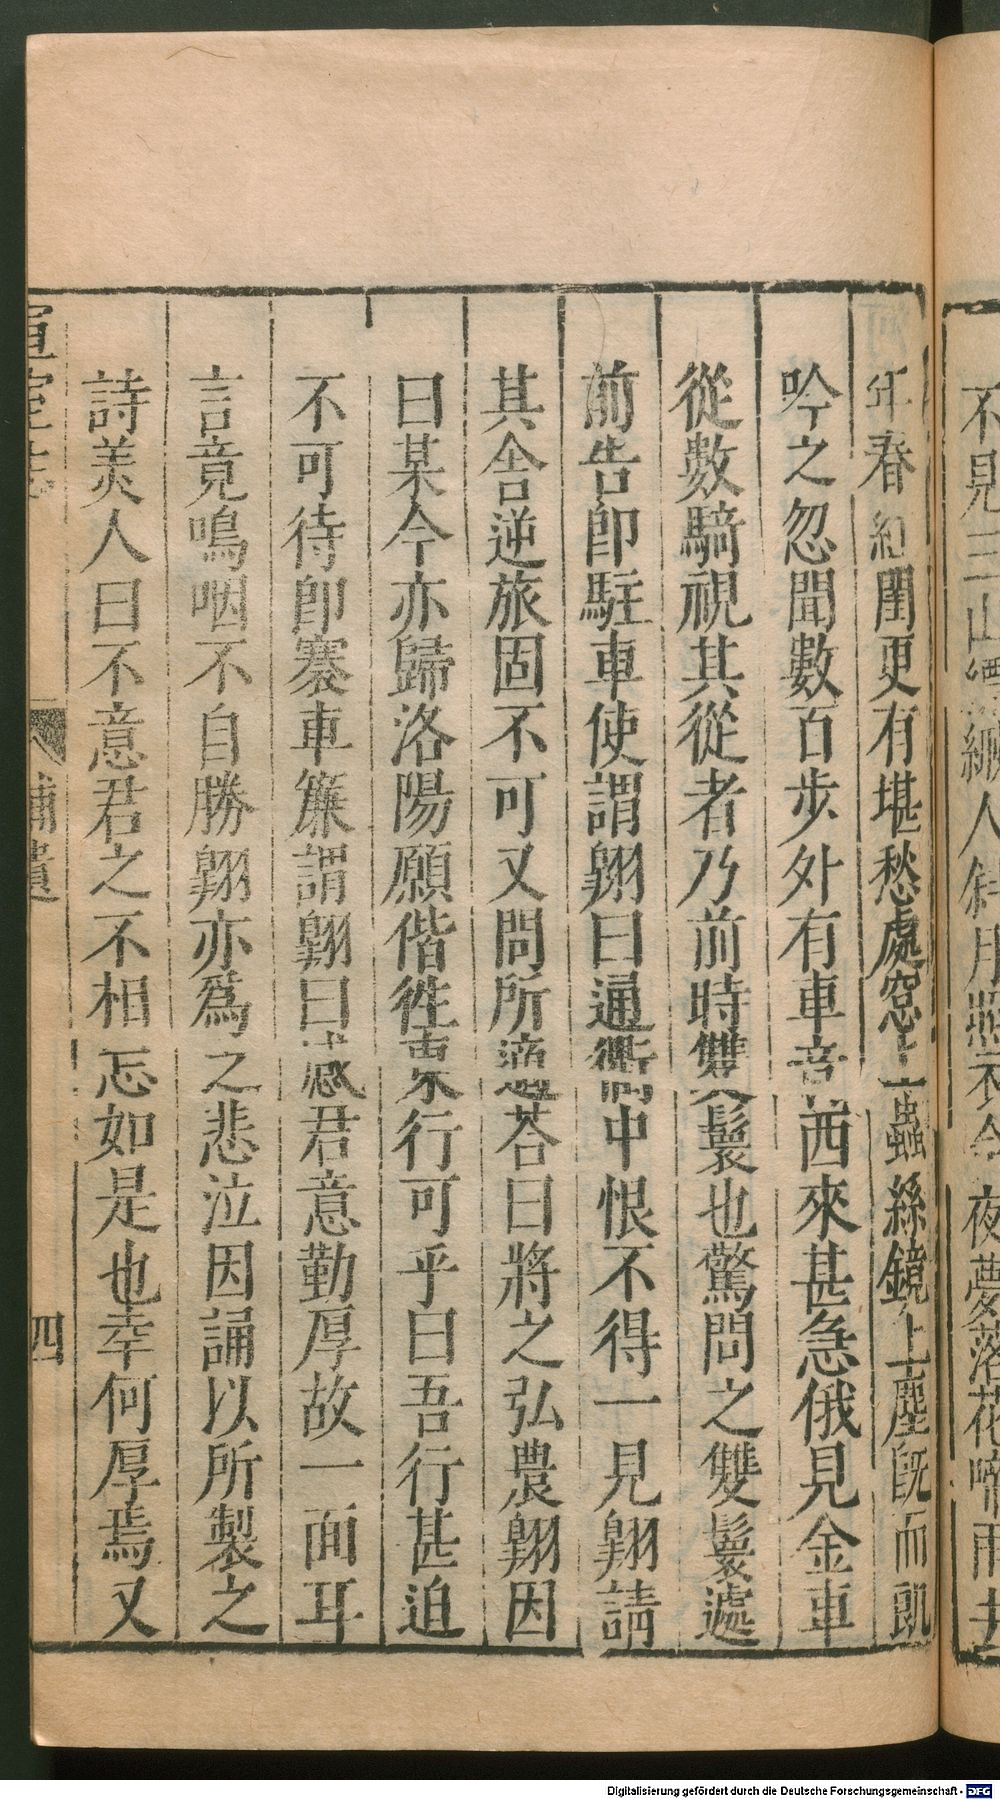 不見三山纜人斜月照衣今夜夢落花啼雨去
年春紅閨更有堪愁處窓上蟲絲鏡上塵旣而諷
吟之忽聞數百步外有車音西來甚急俄見金車
從數騎視其從者乃前時雙鬟也驚問之雙鬟遽
前告卽駐車使謂翱曰通衢中恨不得一見翱請
其舍逆旅固不可又問所適荅曰將之弘農翱因
曰某今亦歸洛陽願偕徃東行可乎曰吾行甚迫
不可待卽褰車簾謂翱曰感君意勤厚故一面耳
言竟嗚咽不自勝翱亦爲之悲泣因誦以所製之
詩美人曰不意君之不相忘如是也幸何厚焉又
宣室志 補遺 四
Digitalisierung gefördert durch die Deutsche Forschungsgemeinschaft - DFG